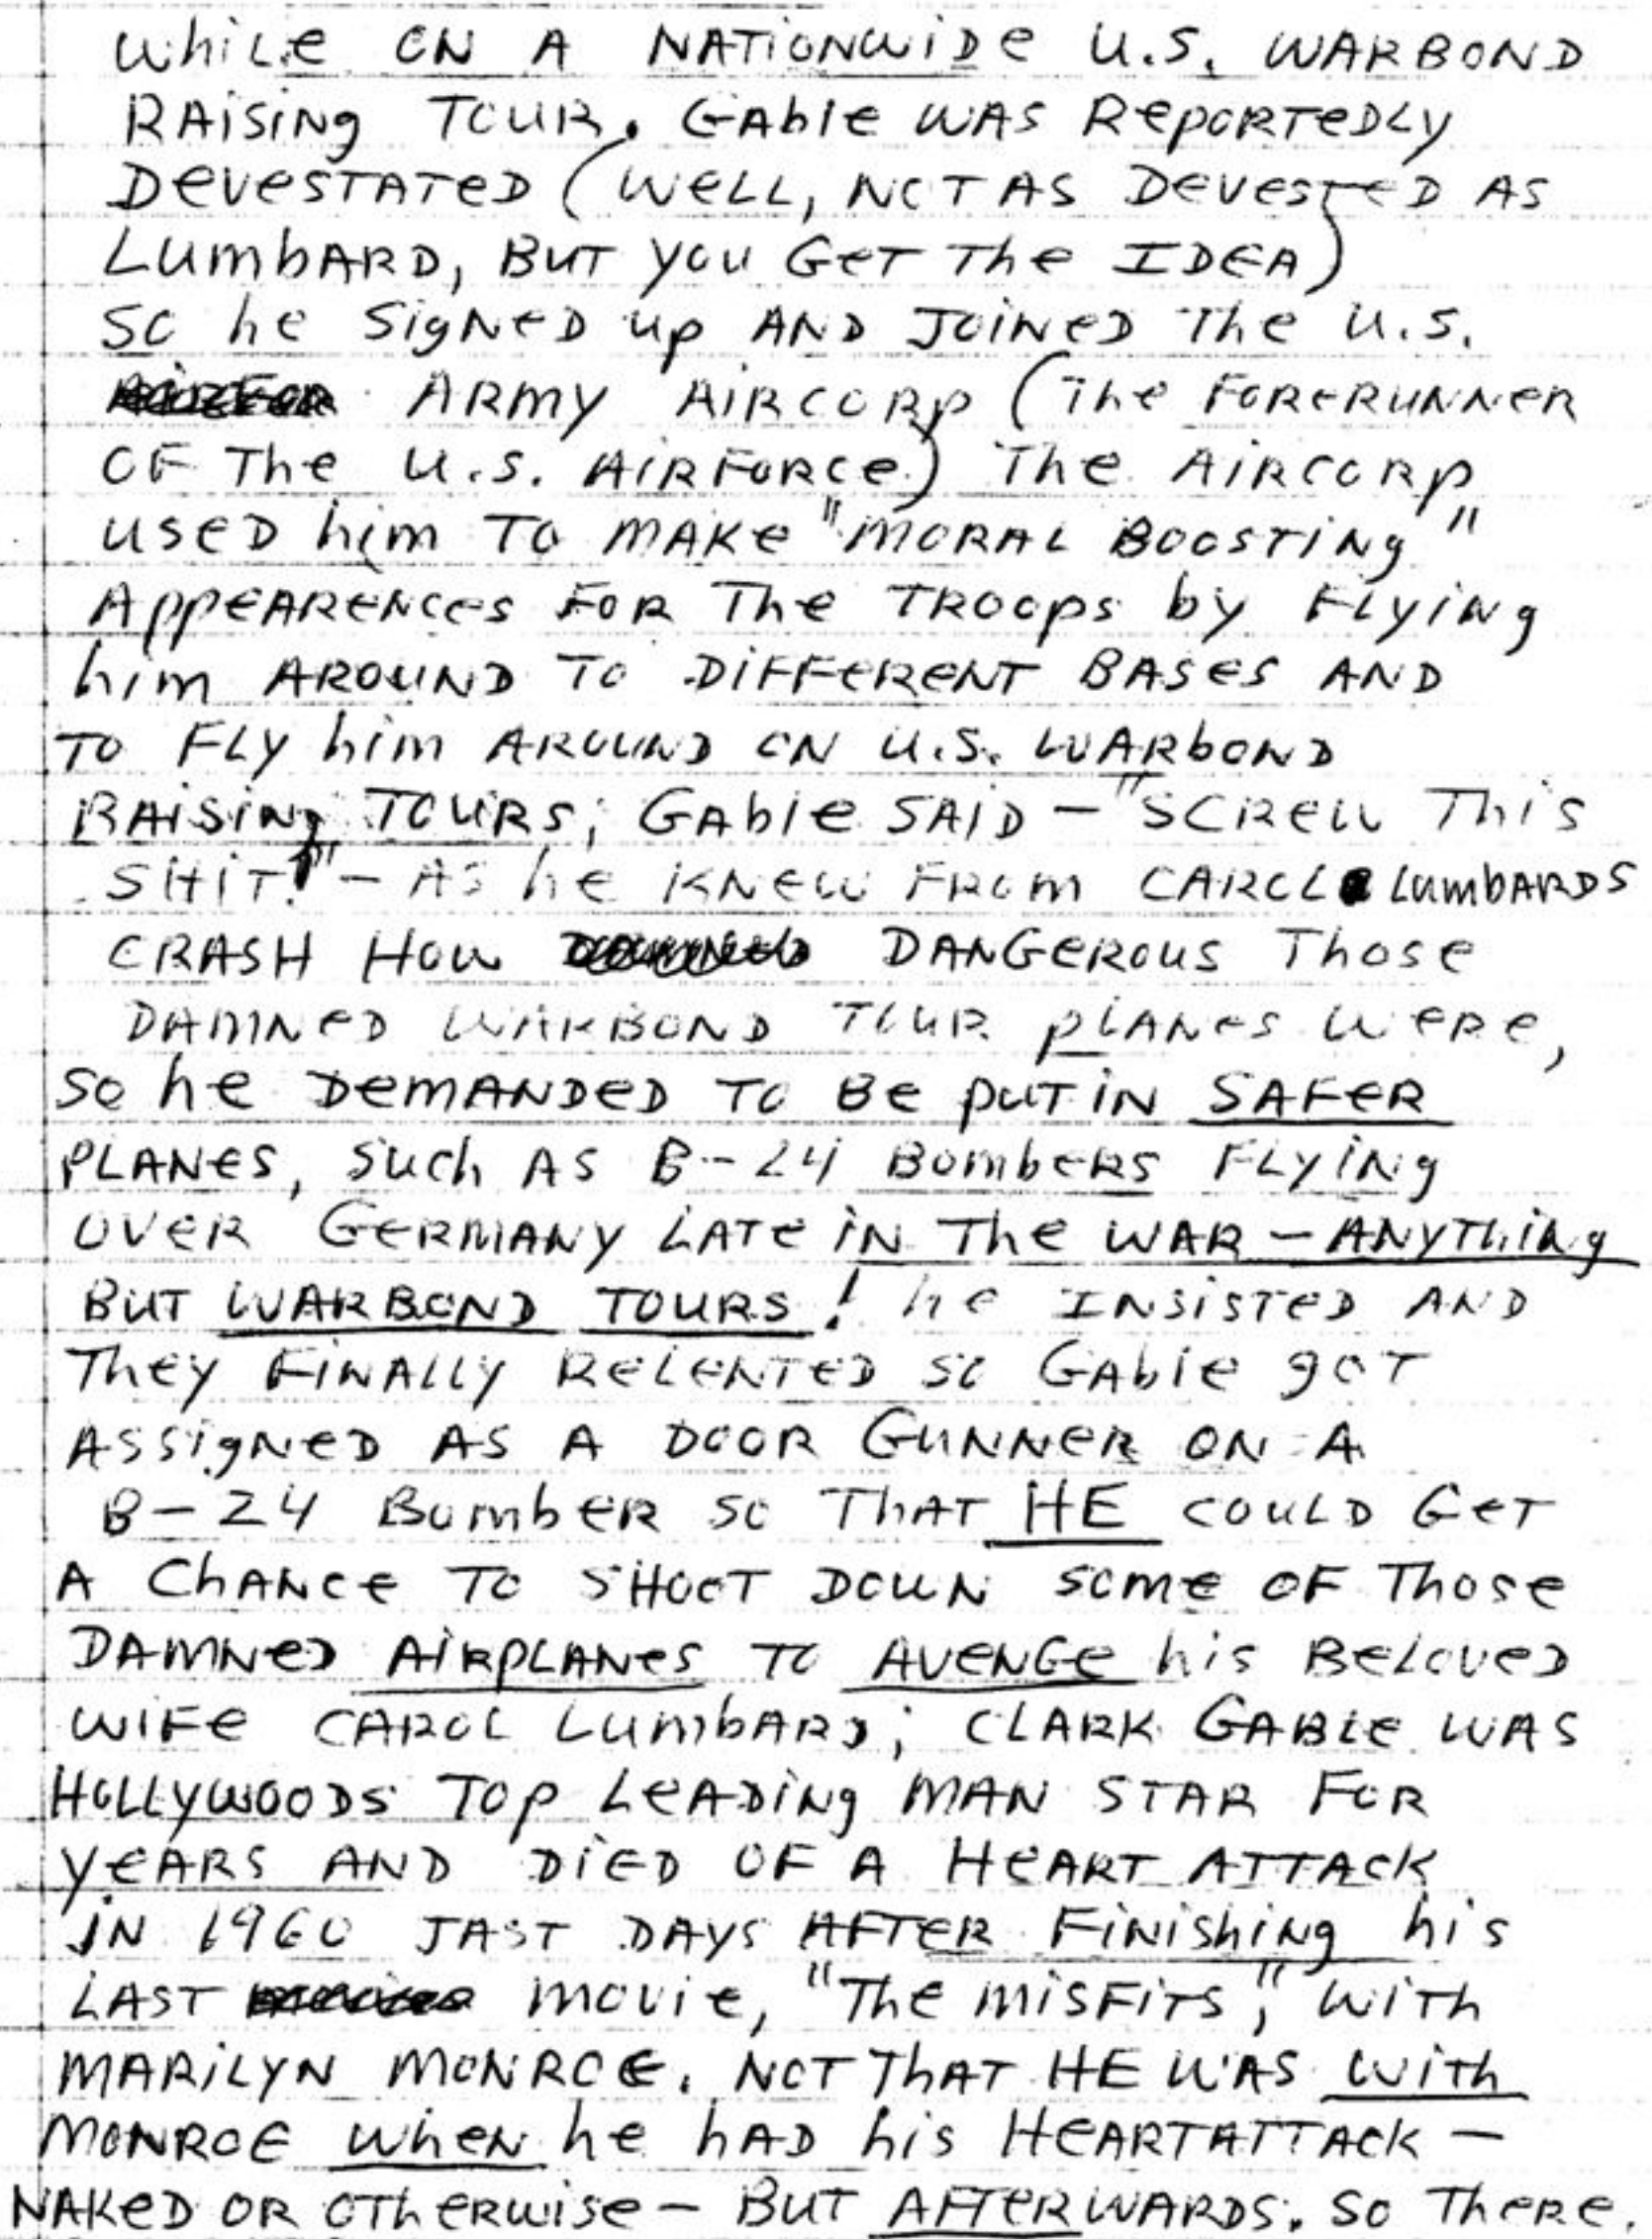 While ON A NATIONWIDE U.S. WARBOND
RAISING TOUR. GAble WAS REPORTEDLY
DEVESTATED (WELL, NOT AS DEVESTED AS
LUMBARD, BUT YOU GET The IDEA)
SO he SIGNED up AND JOINED The U.S.
ARMY AIRCORP (The FORERUNNER
OF The U.S. AIRFORCE) The AIRCORP
USED him TO MAKE "MORAL BOOSTING"
APPEARENCES FOR The TROOPS by FLYING
him AROUND TO DIFFERENT BASES AND
TO FLY him AROUND ON U.S. WARBOND
RAISING TOURS; GAble SAID - "SCREW This
SHIT!" - AS he KNEW FROM CAROL LUMBARDS
CRASH HOW DANGEROUS Those
DAMNED WARBOND TOUR PLANES WERE,
SO he DEMANDED TO BE PUT IN SAFER
PLANES, SUCH AS B-24 BOMBERS FLYING
OVER GERMANY LATE IN The WAR - ANYThiNg
BUT WARBOND TOURS! he INSISTED AND
They FINALLY RELENTED SO GAble got
ASSIGNED AS A DOOR GUNNER ON A
B-24 BOMBER SO ThAT HE COULD GET
A ChANCE TO SHOOT DOWN SOME OF Those
DAMNED AIRPLANES TO AVENGE his BELOVED
WIFE CAROL LUMBARD; CLARK GABLE WAS
HOLLYWOODS TOP LEADING MAN STAR FOR
YEARS AND DIED OF A HEART ATTACK
IN 1960 JAST DAYS AFTER FINISHING his
LAST MOVIE, "The MISFITS," WITh
MARILYN MONROE. NOT ThAT HE WAS WITh
MONROE WhEN he hAD his HEARTATTACK -
NAKED OR OThERWISE - BUT AFTERWARDS. SO ThERE.